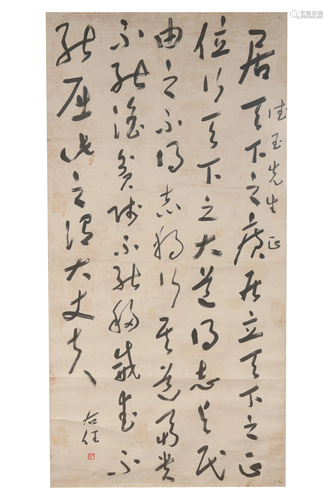 玉先生正
居天下之廣居立天下之正
位行天下之大道得志與民
由之不得志獨行其道富貴
不能淫貧賤不能移威武不
能屈此之謂大丈夫
右任